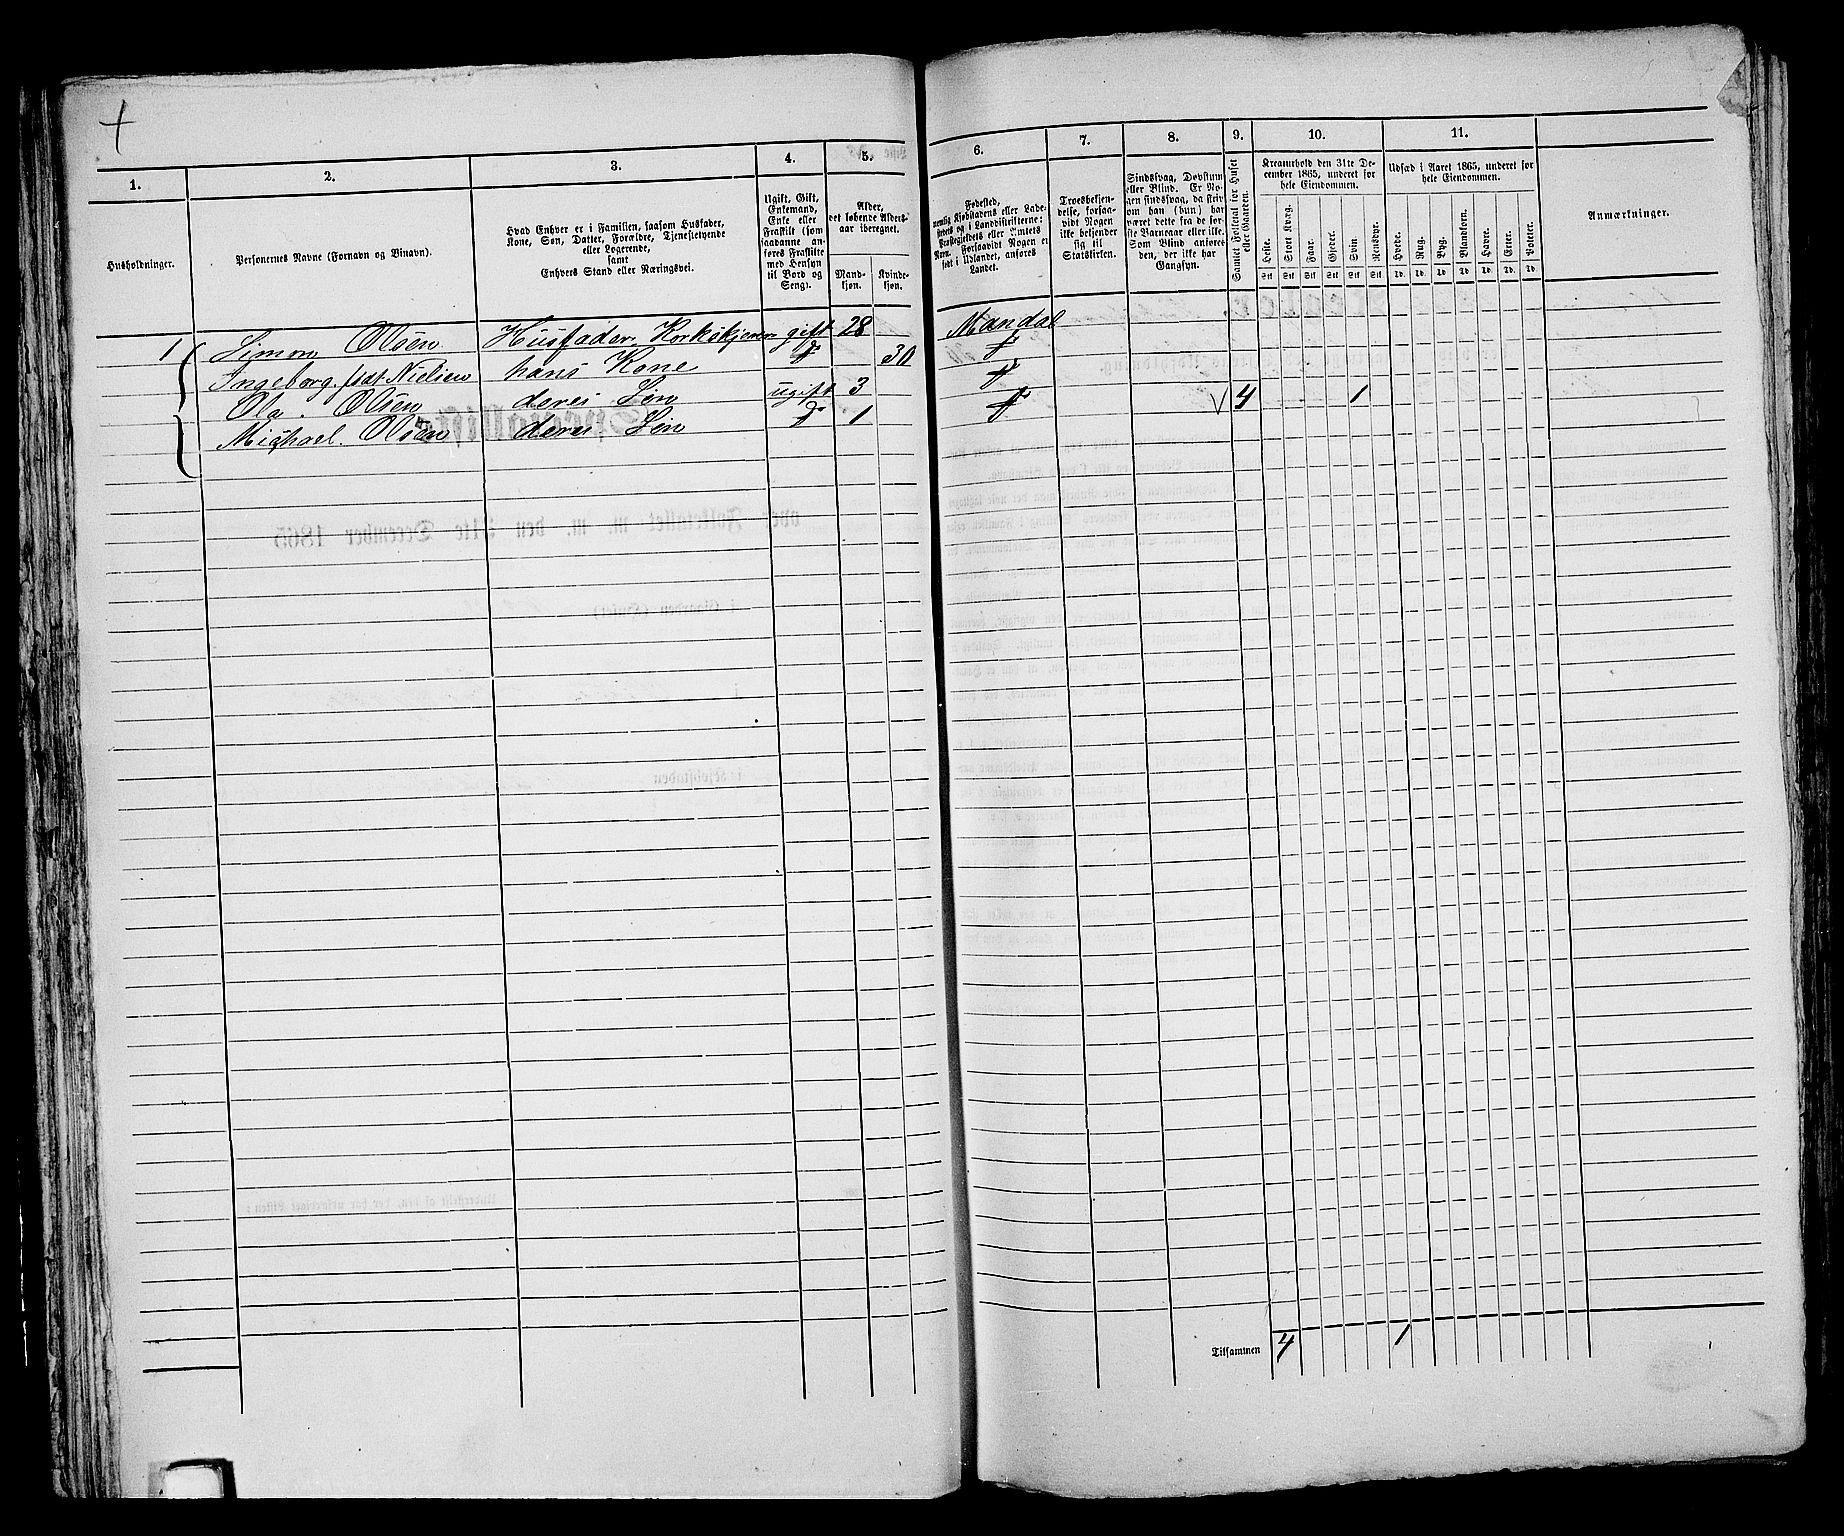 1. 2. 3. 4. 5. 6. 7. 8. 9. 10. 11.
Husholdninger.
Personernes Navne (Fornavn og Binavn).
Hvad Enhver er i Familien, saasom Husfader,
Kone, Søn, Datter, Forældre, Tjenestetyende
eller Logerende,
samt
Enhvers Stand eller Næringsvei.
Ugift, Gift,
Enkemand,
Enke eller
Fraskilt (som
saadanne an-
føres Fraskilte
med Hensyn
til Bord og
Seng).
Alder,
det løbende Alders-
aar iberegnet.
Mand-
kjøn.
Kvinde-
kjøn.
Fødested,
nemlig Kjøbstadens eller Lade-
stedets og i Landdistrikterne:
Præstegjeldets eller Amtets
Navn. Forsaavidt Nogen er
født i Udlandet, anføres
Landet.
Troesbekjen-
delse, forsaa-
vidt Nogen
ikke bekjender
sig til
Statskirken.
Sindssvag, Døvstum
eller Blind. Er No-
gen sindssvag, da skriv
om han (hun) har
været dette fra de før-
ste Barneaar eller ikke.
Som Blind anføres
den, der ikke har
Gangsyn.
Samlet Folketal for Huset
eller Gaarden.
Kreaturhold den 31te De-
cember 1865, underet for
hele Eiendommen.
Heste. Stort Kvæg. Faar. Gjeder. Sviin. Rensdyr.
Udsæd i Aaret 1865, underet for
hele Eiendommen.
Hvede. Rug. Byg. Blandkorn. Havre. Erter. Poteter.
Anmærkninger.
1 Simon Olsen Husfader. Korkskjærer gift 28 Mandal
Ingeborg. født Nielsen hans Kone 30
Ola. Olsen deres Søn ugift 3
Michael. Olsen deres Søn 1 4 1
Tilsammen 4 1